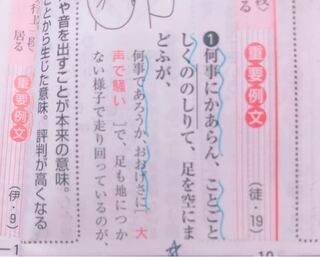 重要例文
(徒・19)
❶何事にかあらん、ことごと
しくののしりて、足を空にま
どふが、
何事であろうか、おおげさに〔大
声で騒い〕で、足も地につか
ない様子で走り回っているのが、
や音を出すことが本来の意味。
とから生じた意味。評判が高くなる
重要例文
(伊・9)
居る